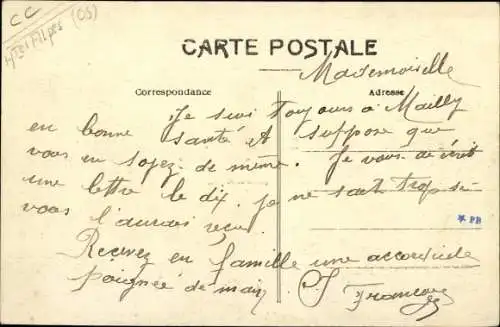 CC
Htes Alpes (05)
CARTE POSTALE
Mademoiselle
Correspondance
Adresse
Je suis toujours à Mailly
en bonne santé et suppose que
vous en soyez de même. Je vous ai écrit
une lettre le dix. Je ne sait trop si
vous l'aurais reçu.
Recevez en famille une accordiale
poignée de main
* PB
J François